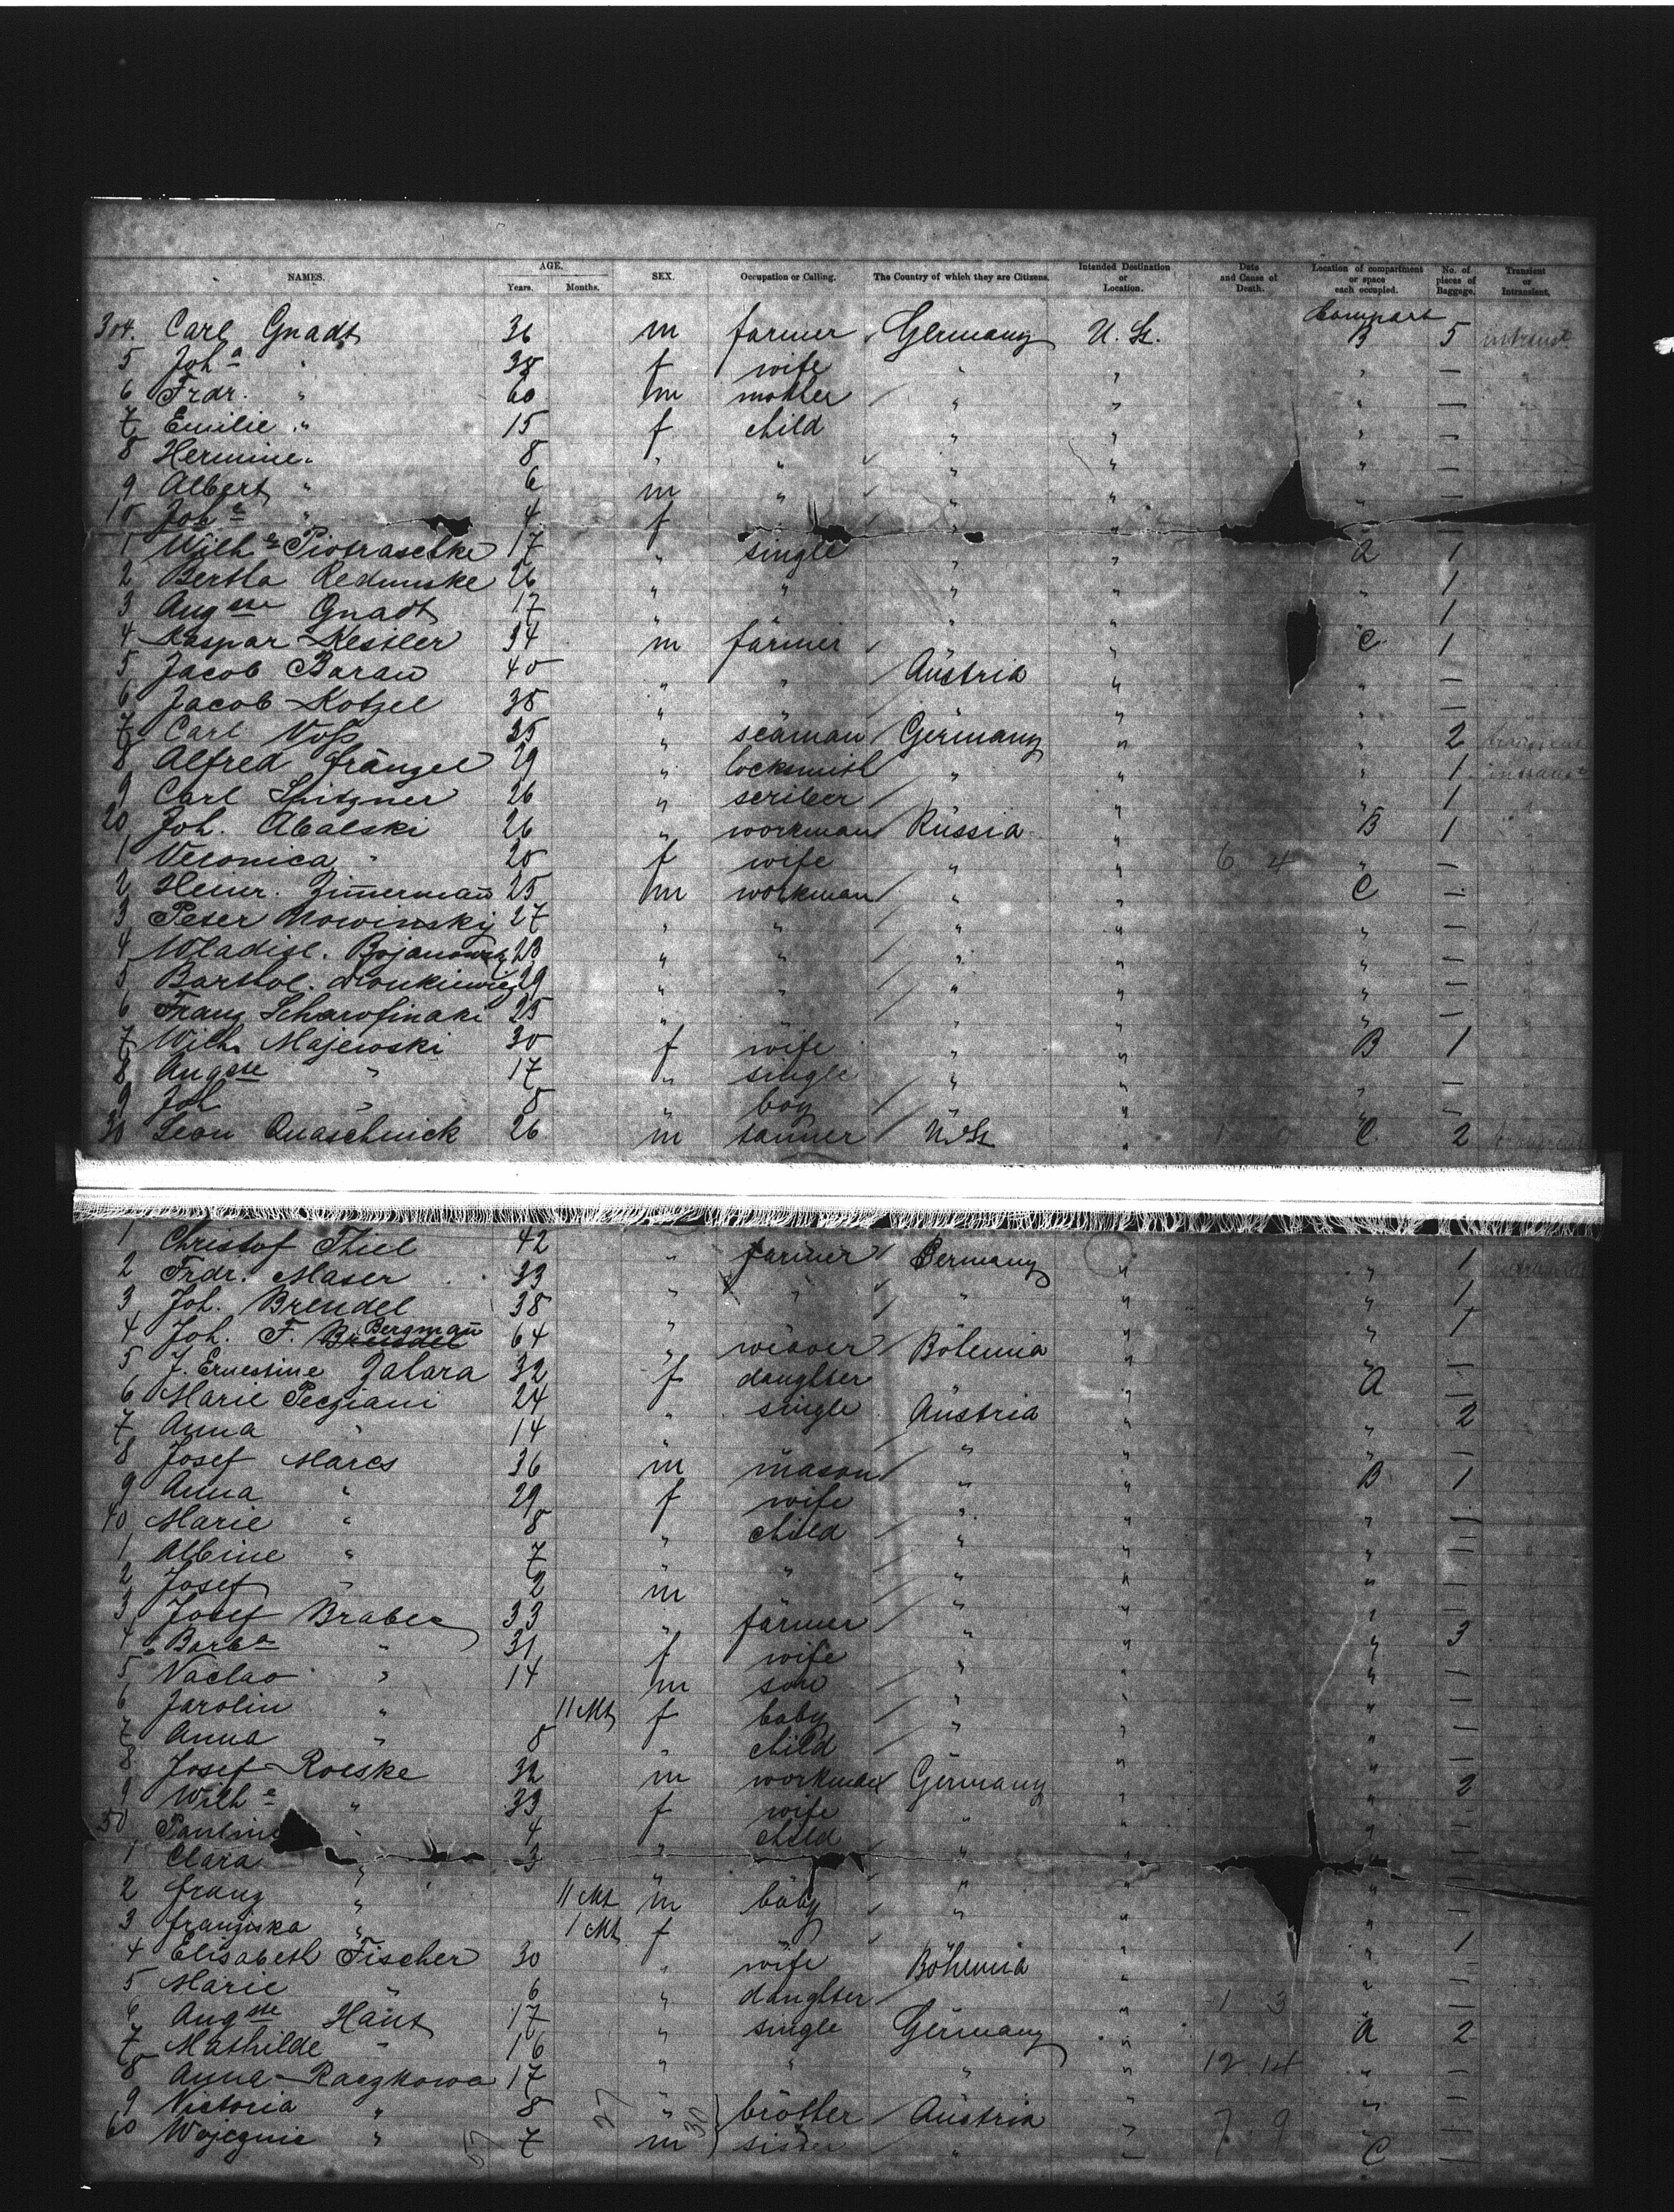 NAMES. AGE. Years. Months. SEX. Occupation or Calling. The Country of which they are Citizens. Intended Destination or Location. Date and Cause of Death. Location of compartment or space each occupied. No. of pieces of Baggage. Transient or Intransient.
304. Carl Gnadt 36 m farmer Germany U. St. Compart B 5
5 Joh a " 38 f wife " " " —
6 Frdr. " 60 m mother " " " —
7 Emilie " 15 f child " " " —
8 Hermine " 8 " " " " " —
9 Albert " 6 m " " " " —
10 Joh a " 4 f " " " —
1 Wilh e Piotraschke 17 " single " " A 1
2 Bertha Redmuske 26 " " " " " 1
3 Aug ste Gnadt 17 " " " " " 1
4 Kaspar Kessler 34 m farmer " C 1
5 Jacob Baran 40 " " Austria " " —
6 Jacob Kotzel 38 " " " " —
7 Carl Voß 25 " seaman Germany " " 2
8 Alfred Frängel 29 " locksmith " " " 1
9 Carl Spitzner 26 " scriber " " " 1
20 Joh. Abalski 26 " workman Russia " B 1
1 Veronica " 20 f wife " " 6 4 " —
2 Heinr. Zimerman 25 m workman " " C —
3 Peter Nowinsky 27 " " " " " —
4 Wladisl. 28 " " " " " —
5 Barthol. 29 " " " " " —
6 Franz 25 " " " " " —
7 Wilh. Majewski 30 f wife " " B 1
8 Aug ste " 17 " single " " " —
9 Joh " 8 " boy " " " —
30 Leon Quaschnick 26 m tanner U. St. " C 2
1 Christof Thiel 42 " farmer Germany " " 1
2 Frdr. Maser 33 " " " " " 1
3 Joh. Brendel 38 " " " " 1
4 Joh. F. Bergman 64 " weaver Bohemia " " —
5 J. Ernestine Zahara 32 f daughter " " A —
6 Marie Pecziani 24 " single Austria " " 2
7 Anna " 14 " " " " —
8 Josef Mares 36 m mason " " B 1
9 Anna " 29 f wife " " " —
40 Marie " 8 " child " " " —
1 Albine " 7 " " " " " —
2 Josef " 2 m " " " —
3 Josef Brabec 33 " farmer " " " 3
4 Barb a " 31 f wife " " " —
5 Vaclav " 14 m son " " " —
6 Jarolin " 11 Mt f baby " " " —
7 Anna " 8 " child " " —
8 Josef Roeske 32 m workman Germany " " 2
9 Wilh e " 33 f wife " " " —
50 Pauline " 4 " child " " —
1 Clara " 3 " " —
2 Franz " 11 Mt m baby " " " —
3 Franziska " 1 Mt f " " 1
4 Elisabeth Fischer 30 " wife Böhemia " " —
5 Marie " 6 " daughter " 1 3 " —
6 Aug ste Haut 17 " single Germany " A 2
7 Mathilde " 16 " " " " 12 14 " —
8 Anna Raczkowa 17 " " " —
9 Victoria " 8 " brother Austria " 7 9 " —
60 " 7 m sister " " C —